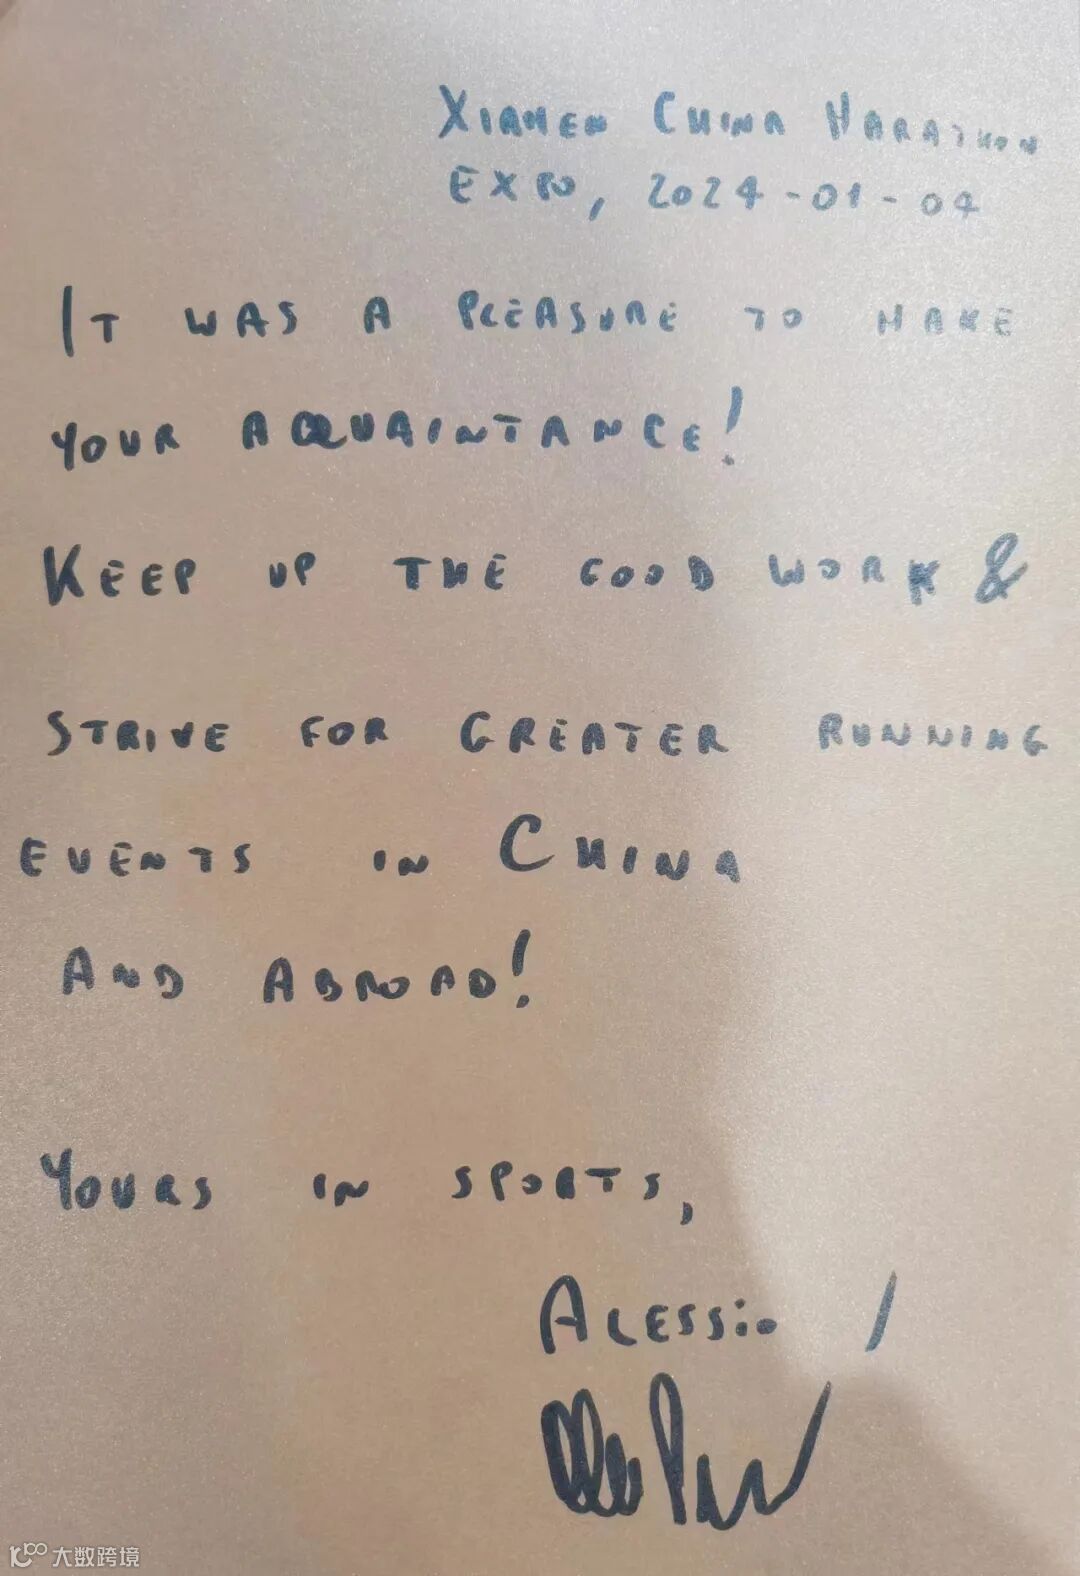 XIAMEN CHINA MARATHON
EXPO, 2024-01-04
IT WAS A PLEASURE TO MAKE
YOUR ACQUAINTANCE!
KEEP UP THE GOOD WORK &
STRIVE FOR GREATER RUNNING
EVENTS IN CHINA
AND ABROAD!
YOURS IN SPORTS,
ALESSiO /
大数跨境